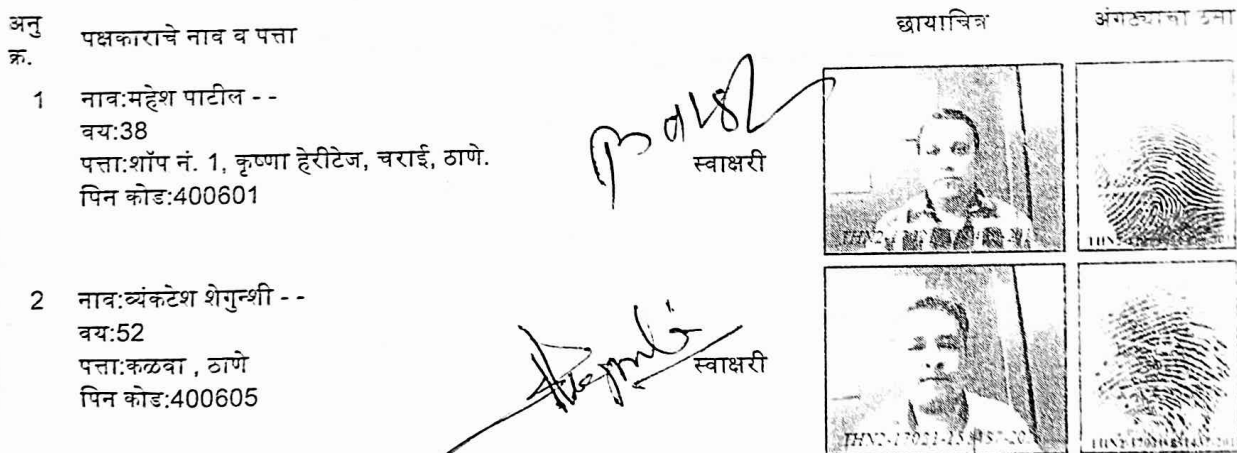 अनु क्र. पक्षकाराचे नाव व पत्ता छायाचित्र अंगठ्याचा ठसा
1 नाव:महेश पाटील - -
वय:38
पत्ता:शॉप नं. 1, कृष्णा हेरीटेज, चराई, ठाणे.
पिन कोड:400601
स्वाक्षरी
2 नाव:व्यंकटेश शेगुन्शी - -
वय:52
पत्ता:कळवा , ठाणे
पिन कोड:400605
स्वाक्षरी